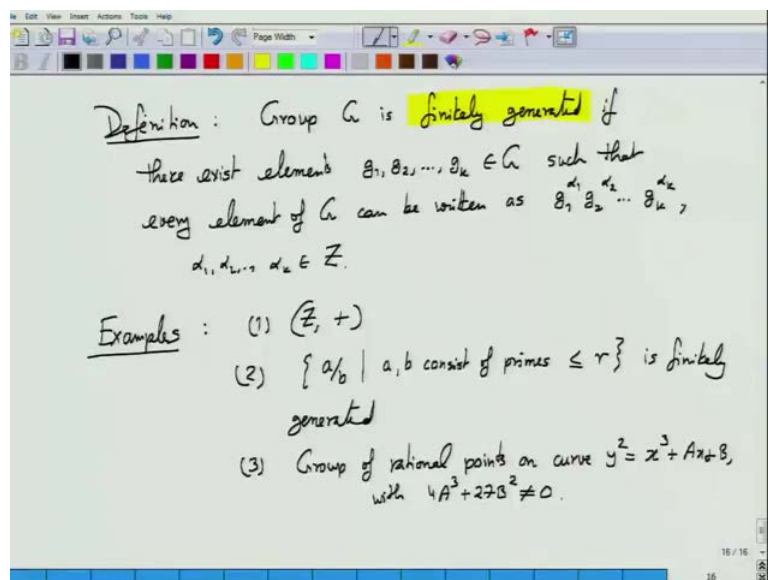 File Edit View Insert Actions Tools Help
Page Width
Definition : Group G is finitely generated if
there exist elements g₁, g₂, ..., gₖ ∈ G such that
every element of G can be written as g₁^α₁ g₂^α₂ ... gₖ^αₖ ,
α₁, α₂, .., αₖ ∈ Z.
Examples : (1) (Z, +)
(2) { a/b | a, b consist of primes ≤ r } is finitely
generated
(3) Group of rational points on curve y² = x³ + Ax + B,
with 4A³ + 27B² ≠ 0.
16 / 16
16